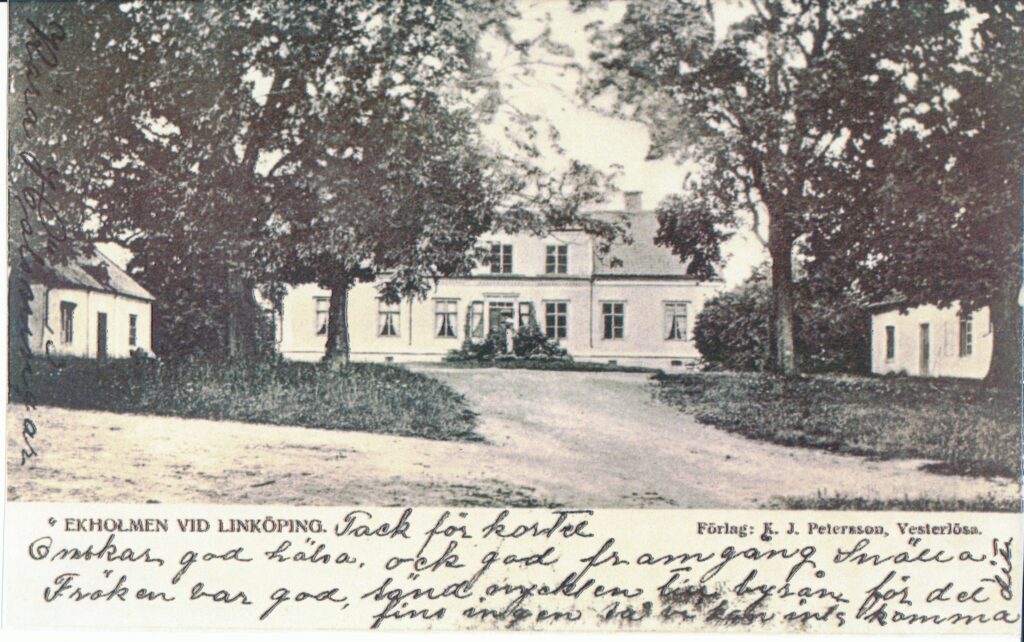 Kära Hälsningar
" EKHOLMEN VID LINKÖPING. Tack för kortet
Förlag: K. J. Petersson, Vesterlösa.
Önskar god hälsa, ock god framgång Snälla
Fröken var god, sänd nycklen till byrån, för det
fins ingen så vi kan inte komma